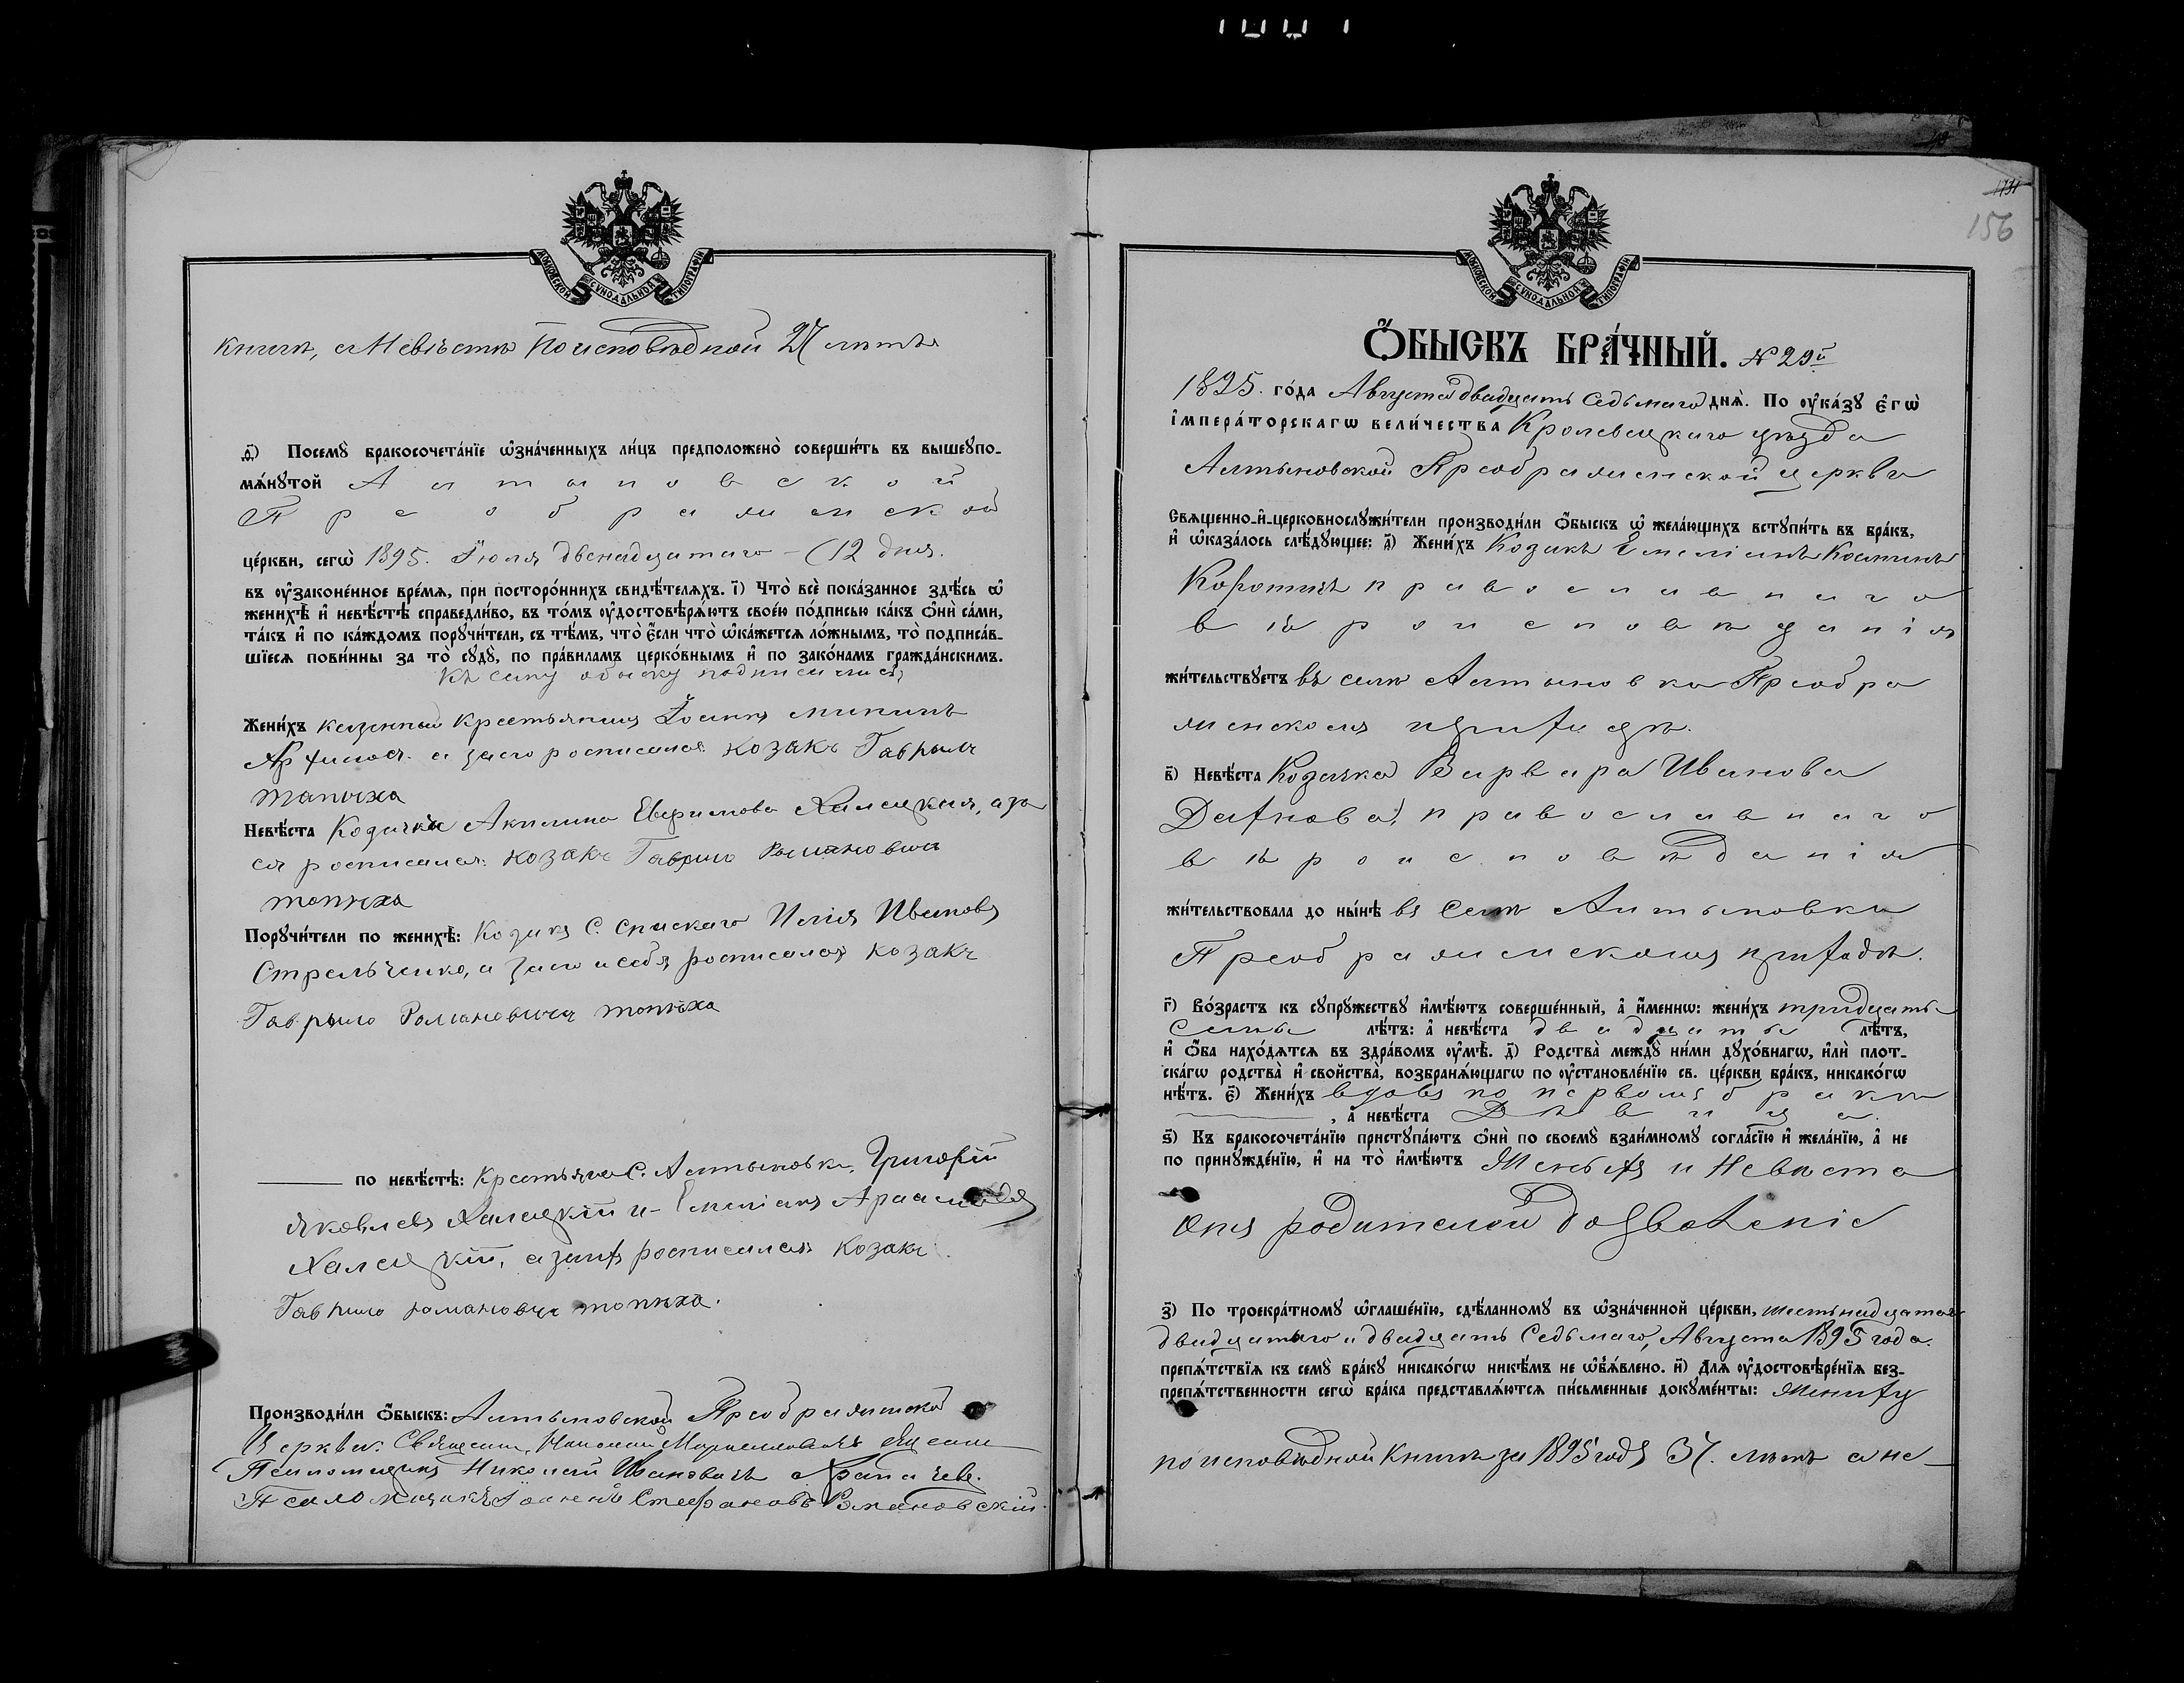 МОСКОВСКОЙ СѴНОДАЛЬНОЙ ТИПОГРАФІИ
книги, а Невѣста По исповѣдной 21 лѣтъ
д҃) Посемꙋ̀ бракосочета́нїе ѡ҆зна́ченныхъ ли́цъ предположено̀ соверши́ть въ вышеꙋпо-
мѧ́нꙋтой Алтыновской
Преображенской
це́ркви, сегѡ̀ 1895. Іюля двенадцатаго - (12 дня.
въ ᲂу҆законе́нное вре́мѧ, при посторо́ннихъ свидѣ́телѧхъ. і҃) Что̀ всѐ пока́занное здѣ́сь ѡ҆
женихѣ̀ и҆ невѣ́стѣ справедли́во, въ то́мъ ᲂу҆достовѣрѧ́ютъ свое́ю по́дписью ка́къ ѻ҆нѝ са́ми,
та́къ и҆ по ка́ждомъ порꙋчи́тели, съ тѣ́мъ, что̀ є҆́сли что̀ ѡ҆ка́жетсѧ ло́жнымъ, то̀ подписа́в-
шїесѧ пови́нны за то̀ сꙋдꙋ̀, по пра́виламъ церко́внымъ и҆ по зако́намъ гражда́нскимъ.
Къ сему обыску подписались,
Жени́хъ казенный Крестьянинъ Іоаннъ
а за его росписался козакъ Гаврыло
Топчха
Невѣ́ста Козачка Акилина Евфимова Халецкая, а за
ся росписался: козакъ Гаврыло Романовичъ
топчха
Порꙋчи́тели по женихѣ̀: Козакъ С. Спаскаго Илія Ивановъ
Стрельченко, а за его и себя росписался козакъ
Гаврыло Романовичъ топчха
по невѣ́стѣ: Крестьяне С. Алтыновки, Григорій
Яковлевъ Халецкій и Емеліанъ
Халецкій, а за нихъ росписался Козакъ
Гаврыло романовичъ топчха.
Производи́ли ѻ҆́быскъ: Алтыновской Преображенской
Церкви: Священникъ Николай
Псаломщикъ Николай Ивановичъ
Псаломщикъ Іоаннъ Стефановъ Романовский.
156
МОСКОВСКОЙ СѴНОДАЛЬНОЙ ТИПОГРАФІИ
Ѻ҆́БЫСКЪ БРА́ЧНЫЙ. № 29й
1895. го́да Августа двадцать Седьмаго днѧ̀. По ᲂу҆ка́зꙋ є҆гѡ̀
і҆мпера́торскагѡ вели́чества Кролевецкаго уѣзда
Алтыновской Преображенской церкви
Свѧщенно-и҆-церковнослꙋжи́тели производи́ли ѻ҆́быскъ ѡ҆ жела́ющихъ встꙋпи́ть въ бра́къ,
и҆ ѡ҆каза́лось слѣ́дꙋющее: а҃) Жени́хъ Козакъ Емеліанъ Косминъ
православнаго
вѣроисповѣданія
жи́тельствꙋетъ въ селѣ Алтыновка Преобра
женскомъ приходѣ.
в҃) Невѣ́ста Козачка Варвара Иванова
Дахнова, православнаго
вѣроисповѣданія
жи́тельствовала до ны́нѣ въ Селѣ Алтыновки
Преображенскомъ приходѣ.
г҃) Во́зрастъ къ сꙋпрꙋ́жествꙋ и҆мѣ́ютъ соверше́нный, а҆ и҆́меннѡ: жени́хъ тридцать
Семь лѣ́тъ: а҆ невѣ́ста двадцать лѣ́тъ,
и҆ ѻ҆́ба нахо́дѧтсѧ въ здра́вомъ ᲂу҆мѣ̀. д҃) Родства̀ междꙋ̀ ни́ми дꙋхо́внагѡ, и҆лѝ плот-
ска́гѡ родства̀ и҆ сво́йства̀, возбранѧ́ющагѡ по ᲂу҆становле́нїю св. це́ркви бра́къ, никако́гѡ
нѣ́тъ. є҃) Жени́хъ вдовъ по первомъ бракѣ
, а҆ невѣ́ста Дѣвица.
ѕ҃) Къ бракосочета́нїю пристꙋпа́ютъ ѻ҆нѝ по своемꙋ̀ взаи́мномꙋ согла́сїю и҆ жела́нїю, а҆ не
по принꙋжде́нїю, и҆ на то̀ и҆мѣ́ютъ Женихъ и Невѣста
отъ родителей дозволеніе
з҃) По троекра́тномꙋ ѡ҆глаше́нїю, сдѣ́ланномꙋ въ ѡ҆зна́ченной це́ркви, шестьнадцатаго
двадцатаго и двадцать Седьмаго, Августа 1895 года.
препѧ́тствїѧ къ семꙋ̀ бра́кꙋ никако́гѡ никѣ́мъ не ѡ҆б̾ѧ́влено. и҃) Длѧ ᲂу҆достовѣре́нїѧ без-
препѧ́тственности сегѡ̀ бра́ка представлѧ́ютсѧ пи́сьменные докꙋме́нты: Жениху
по исповѣдной Книгѣ за 1895 годъ 37. лѣтъ а не-